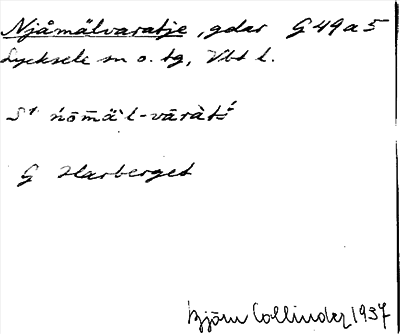 Njåmälvaratje, gdar G 49 a 5
Lycksele sn o. tg, Vbt l.
G Harberget
Björn Collinder 1937